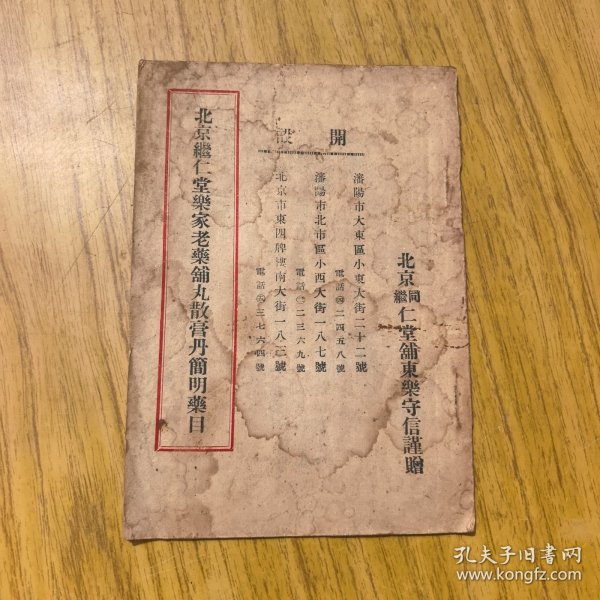 北京同繼仁堂舖東樂守信謹贈
開設
瀋陽市大東區小東大街二十二號
電話㈣二四五八號
瀋陽市北市區小西大街一八七號
電話㈡二三六九號
北京市東四牌樓南大街一八二號
電話 三七六四號
北京繼仁堂樂家老藥舖丸散膏丹簡明藥目
孔夫子旧书网
www.kongfz.com